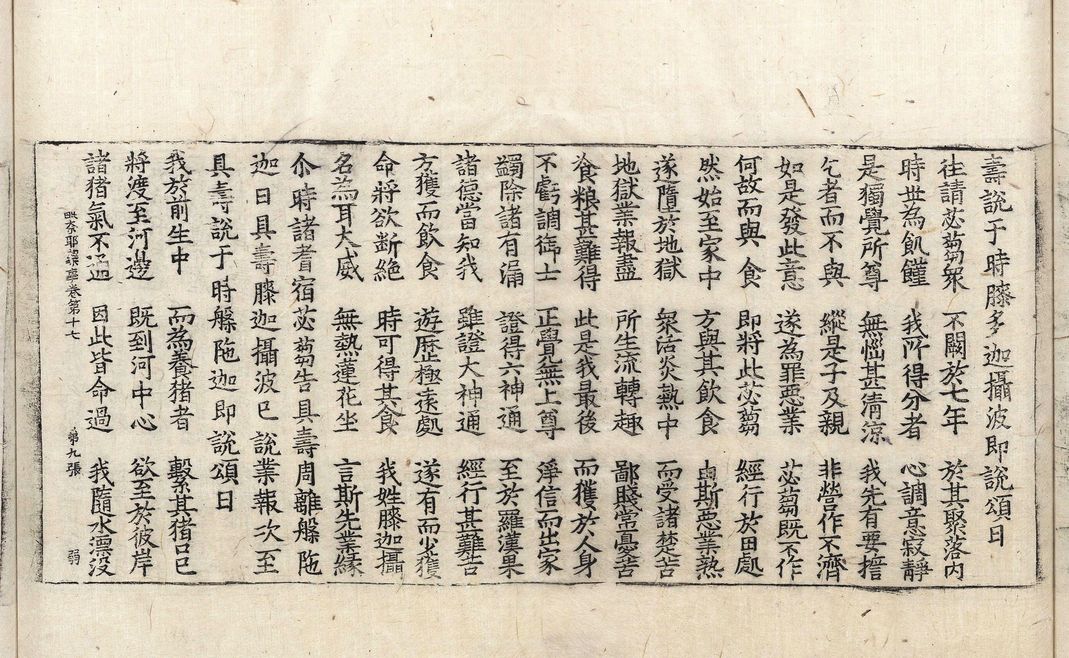 壽說于時縢多迦攝波即說頌曰
往請苾蒭衆　不闕於七年　於其聚落內
時世為飢饉　我所得分者　心調意寂靜
是獨覺所尊　無惱甚清涼　我先有要揩
乞者而不與　縱是子及親　非營作不濟
如是發此意　遂為罪惡業　苾蒭既不作
何故而與食　即將此苾蒭　經行於田處
然始至家中　方與其飲食　由斯惡業熱
遂墮於地獄　衆活炎熱中　而受諸楚苦
地獄業報盡　所生流轉趣　鄙賤常憂苦
飡粮甚難得　此是我最後　而獲於人身
不虧調御士　正覺無上尊　淨信而出家
蠲除諸有漏　證得六神通　至於羅漢果
諸德當知我　雖證大神通　經行甚難苦
方獲而飲食　遊歷極遠處　遂有而少獲
命將欲斷絕　時可得其食　我姓縢迦攝
名為耳大威　無熱蓮花坐　言斯先業緣
尒時諸耆宿苾蒭告具壽周離槃陁
迦曰具壽縢迦攝波已說業報次至
具壽說于時槃陁迦即說頌曰
我於前生中　而為養猪者　繫其猪口已
將渡至河邊　既到河中心　欲至於彼岸
諸猪氣不通　因此皆命過　我隨水漂沒
毗奈耶藥事卷第十七　第九張　弱